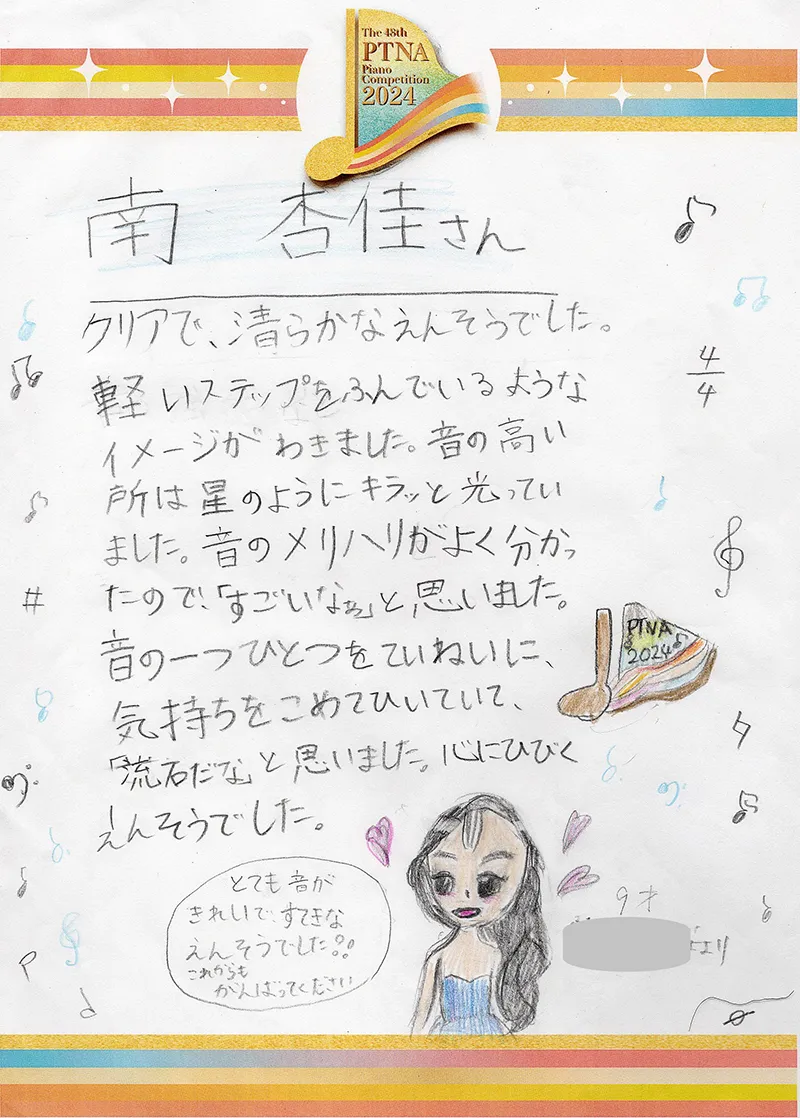 The 48th
PTNA
Piano
Competition
2024
南 杏佳さん
クリアで、清らかなえんそうでした。
軽いステップをふんでいるような
イメージがわきました。音の高い
所は星のようにキラッと光ってい
ました。音のメリハリがよく分かっ
たので、「すごいなぁ」と思いました。
音の一つひとつをていねいに、
気持ちをこめてひいていて、
「流石だな」と思いました。心にひびく
えんそうでした。
4
4
PTNA
2024
とても音が
きれいで、すてきな
えんそうでした!!
これからも
がんばってください
9才
より